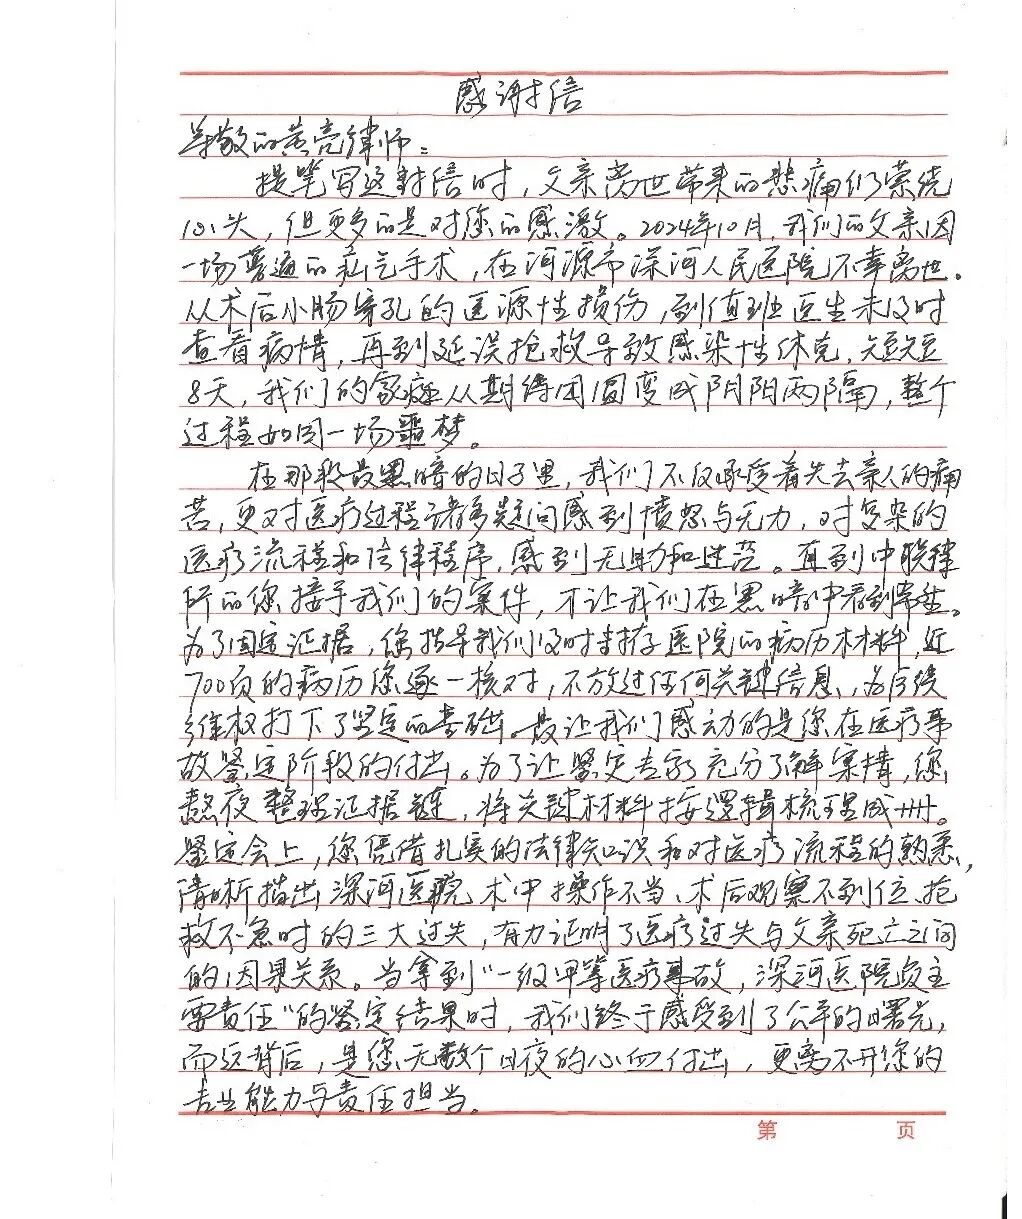 感谢信
尊敬的黄亮律师：
提笔写这封信时，父亲离世带来的悲痛仍萦绕
心头，但更多的是对您的感激。2024年10月，我们的父亲因
一场普通的疝气手术，在河源市深河人民医院不幸离世。
从术后小肠穿孔的医源性损伤，到值班医生未及时
查看病情，再到延误抢救导致感染性休克，短短
8天，我们的家庭从期待团圆变成阴阳两隔，整个
过程如同一场噩梦。
在那段最黑暗的日子里，我们不仅承受着失去亲人的痛
苦，更对医疗过程诸多疑问感到愤怒与无力，对复杂的
医疗流程和法律程序，感到无助和迷茫。直到中联律
所的您接手我们的案件，才让我们在黑暗中看到希望。
为了固定证据，您指导我们及时封存医院的病历材料，近
700页的病历您逐一核对，不放过任何关键信息，为后续
维权打下了坚定的基础。最让我们感动的是您在医疗事
故鉴定阶段的付出。为了让鉴定专家充分了解案情，您
熬夜整理证据链，将关键材料按逻辑梳理成册。
鉴定会上，您凭借扎实的法律知识和对医疗流程的熟悉，
清晰指出深河医院术中操作不当、术后观察不到位、抢
救不及时的三大过失，有力证明了医疗过失与父亲死亡之间
的因果关系。当拿到“一级甲等医疗事故，深河医院负主
要责任”的鉴定结果时，我们终于感受到了公平的曙光，
而这背后，是您无数个日夜的心血付出，更离不开您的
专业能力与责任担当。
第 页